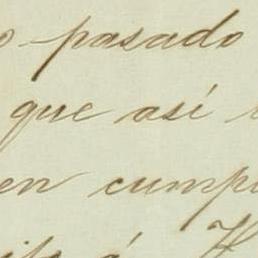 o pasado
que así
en cumpl
á